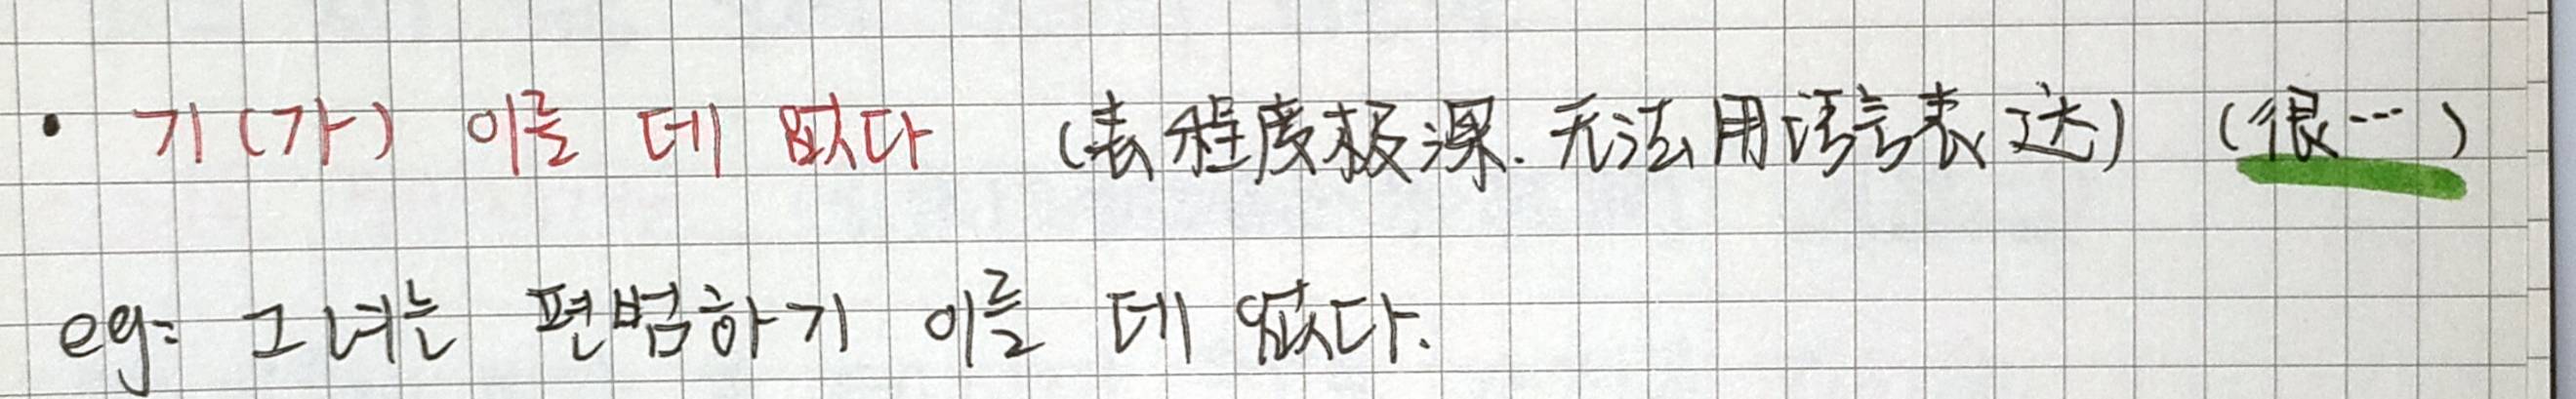 • 기(가) 이를 데 없다 (表程度极深.无法用语言表达) (很…)
eg: 그녀는 편범하기 이를 데 없다.